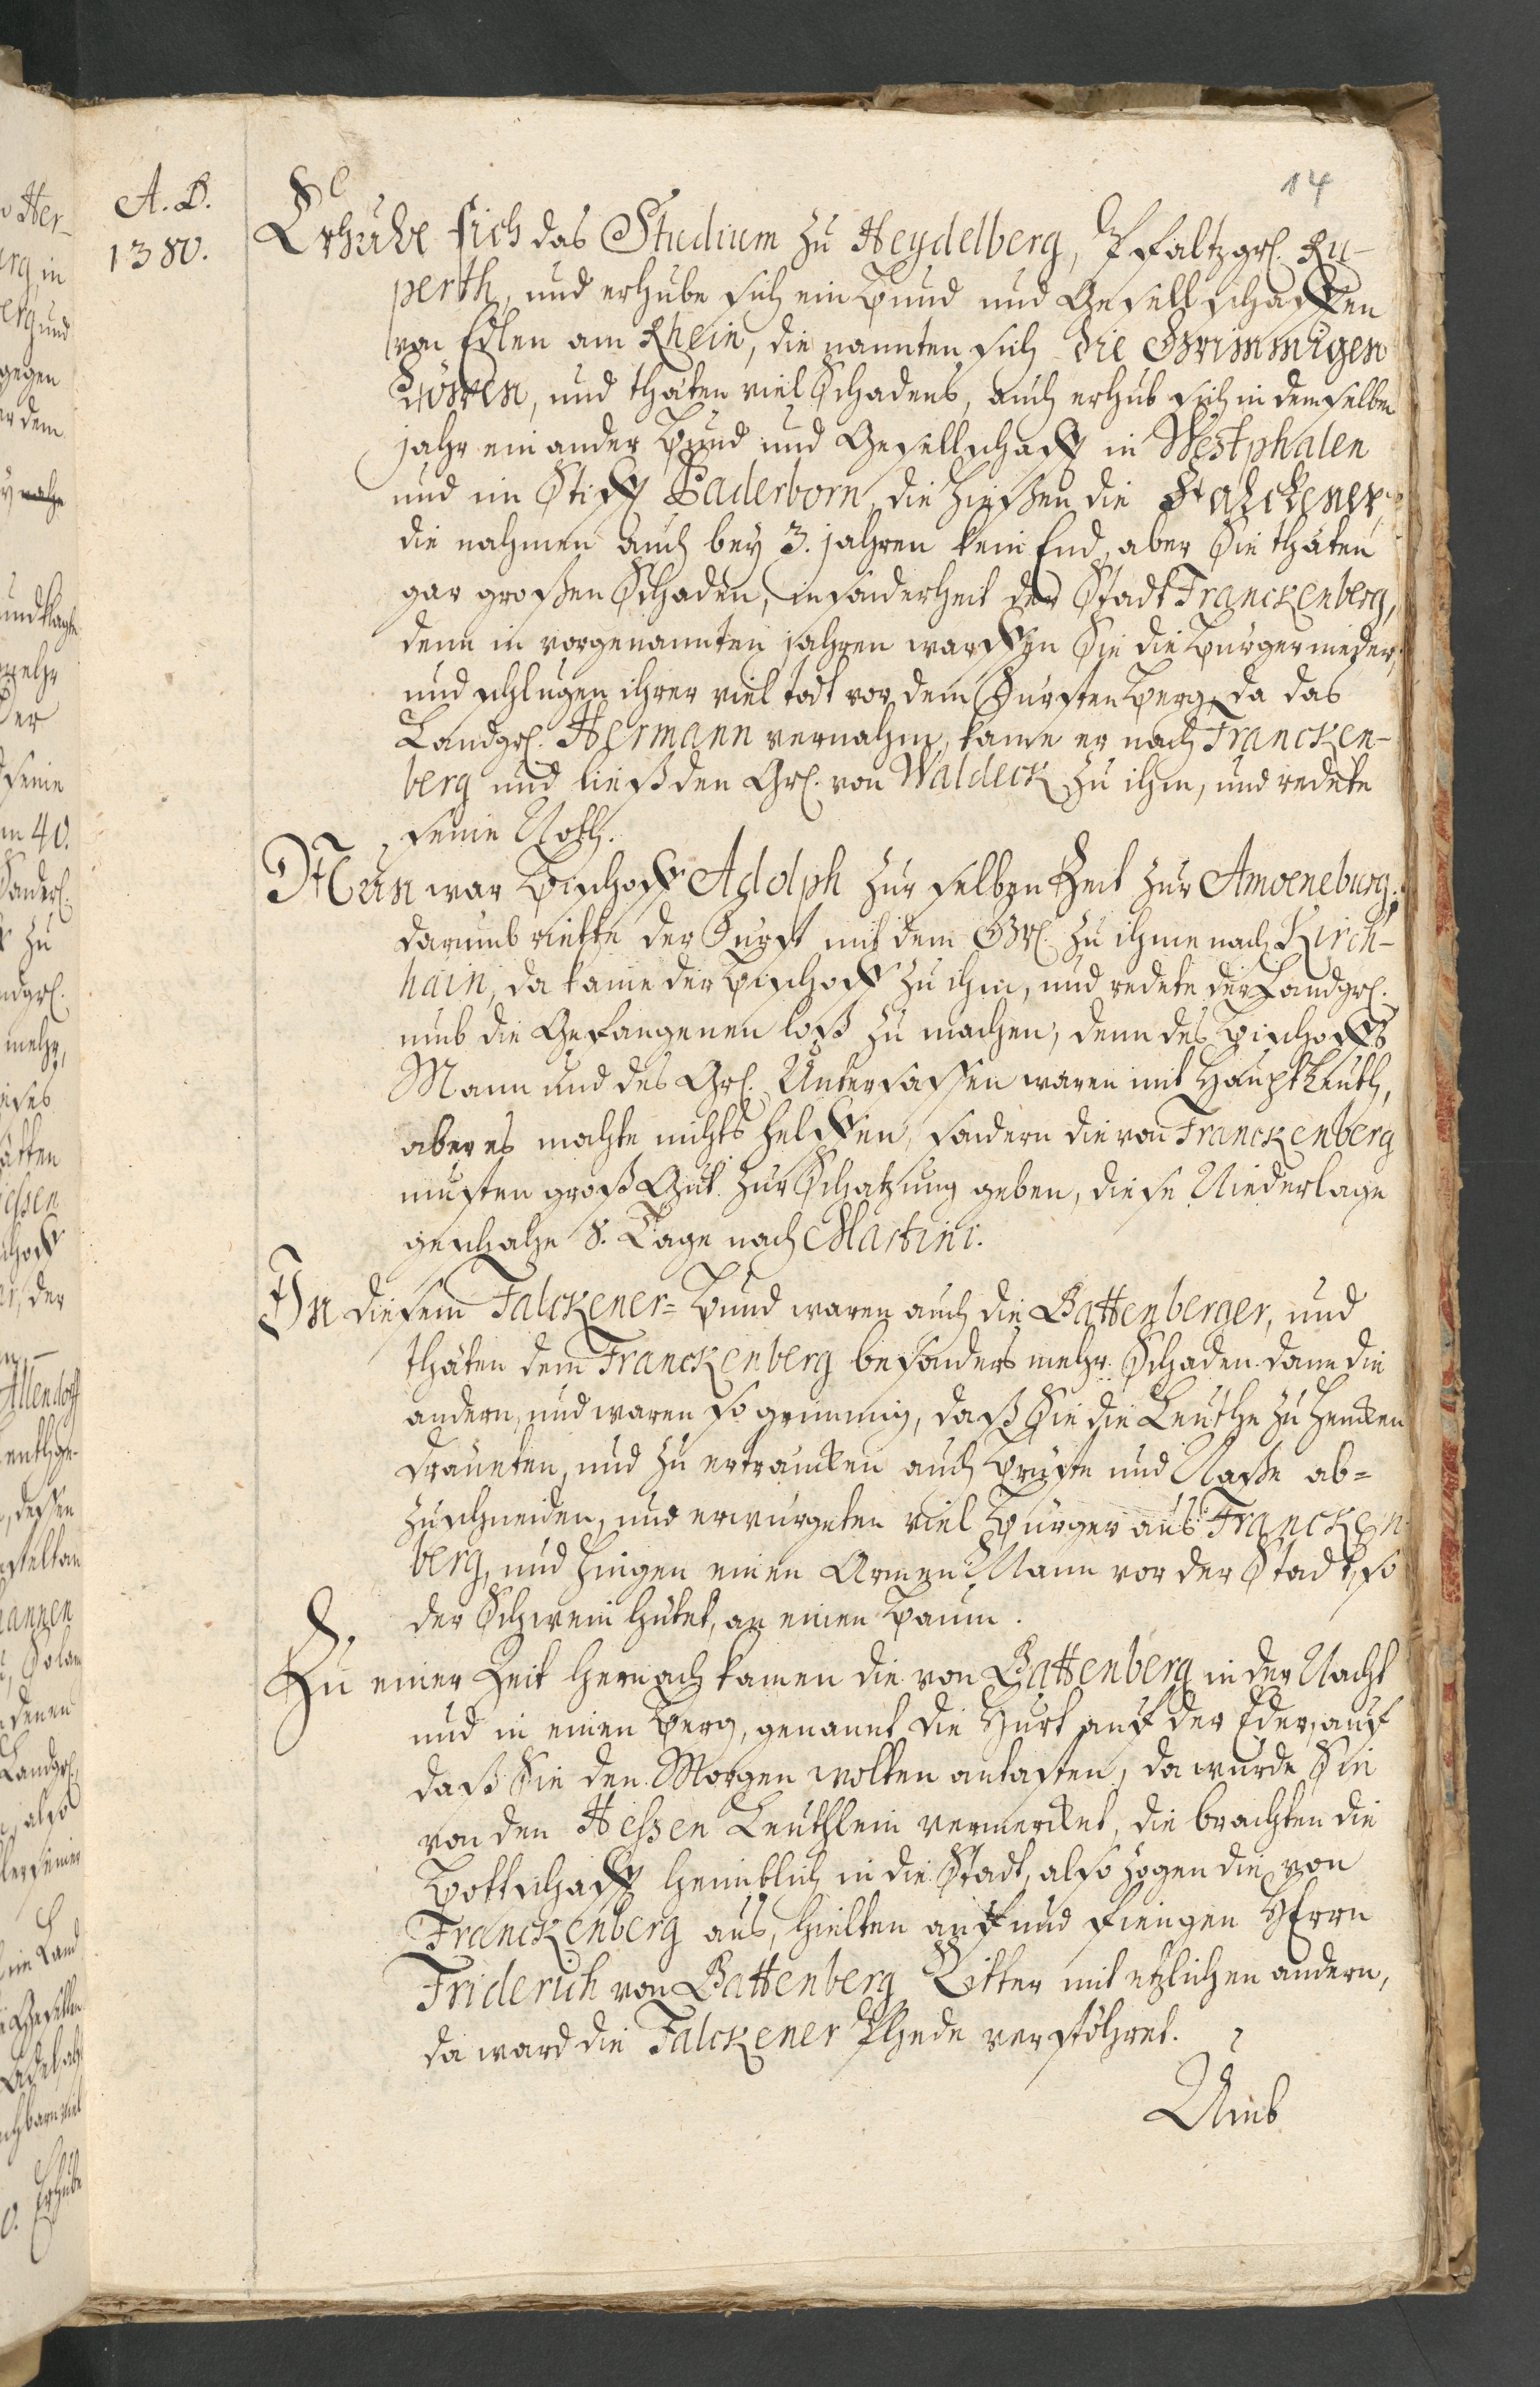 14
A. D.
1380.
Erhube sich das Studium zu Heydelberg, Pfaltzgrf. Ru-
perth, und erhube sich ein Bund und Gesellschafften
von Edlen am Rhein, die nannten sich die Grimmigen
Löwen, und thäten viel Schadens, auch erhub sich in demselben
jahr ein ander Bund und Gesellschafft in Westphalen
und im Stifft Paderborn, die hießen die Falckener,
die nahmen auch bey 3. jahren kein End, aber Sie thäten
gar großen Schaden, insonderheit der Stadt Franckenberg,
denn in vorgenannten jahren warffen Sie die Bürger nieder,
und schlugen ihrer viel todt vor dem Fürsten Berg, da das
Landgrf. Hermann vernahm, kame er nach Francken-
berg und ließ den Grf. von Waldeck zu ihm, und redete
seine Noth.
Nun war Bischoff Adolph zur selben Zeit zur Amoeneburg;
darumb riette der Fürst mit dem Grf. zu ihme nach Kirch-
hain, da kame der Bischoff zu ihm, und redete der Landgrf.
umb die Gefangenen loß zu machen, denn des Bischoffs
Mann und des Grf. Untersassen waren mit Hauptleuth,
aber es mochte nichts helffen, sondern die von Franckenberg
musten groß Gut zur Schatzung geben, diese Niederlage
geschahe 8. Tage nach Martini.
In diesem Falckener-Bund waren auch die Battenberger, und
thäten dem Franckenberg besonders mehr Schaden dann die
andern, und waren so grimmig, daß Sie die Leuthe zu hencken
dräueten, und zu ertrancken auch Brüste und Naße ab-
zuschneiden, und erwürgeten viel Bürger aus Francken-
berg, und hingen einen Armen Mann vor der Stadt, so
der Schwein hütet, an einen Baum.
Zu einer Zeit hernach kamen die von Battenberg in der Nacht
und in einen Berg, genannt die Hurt auf der Eder, auf
daß Sie den Morgen wolten antasten, da wurde Sie
von den Hessen Leuthlein vermercket, die brachten die
Bottschafft heimblich in die Stadt, also zogen die von
Franckenberg aus, hielten auf und fiengen HErrn
Friderich von Battenberg Ritter mit etzlichen andern,
da ward die Falckener Phede verstöhret.
Umb